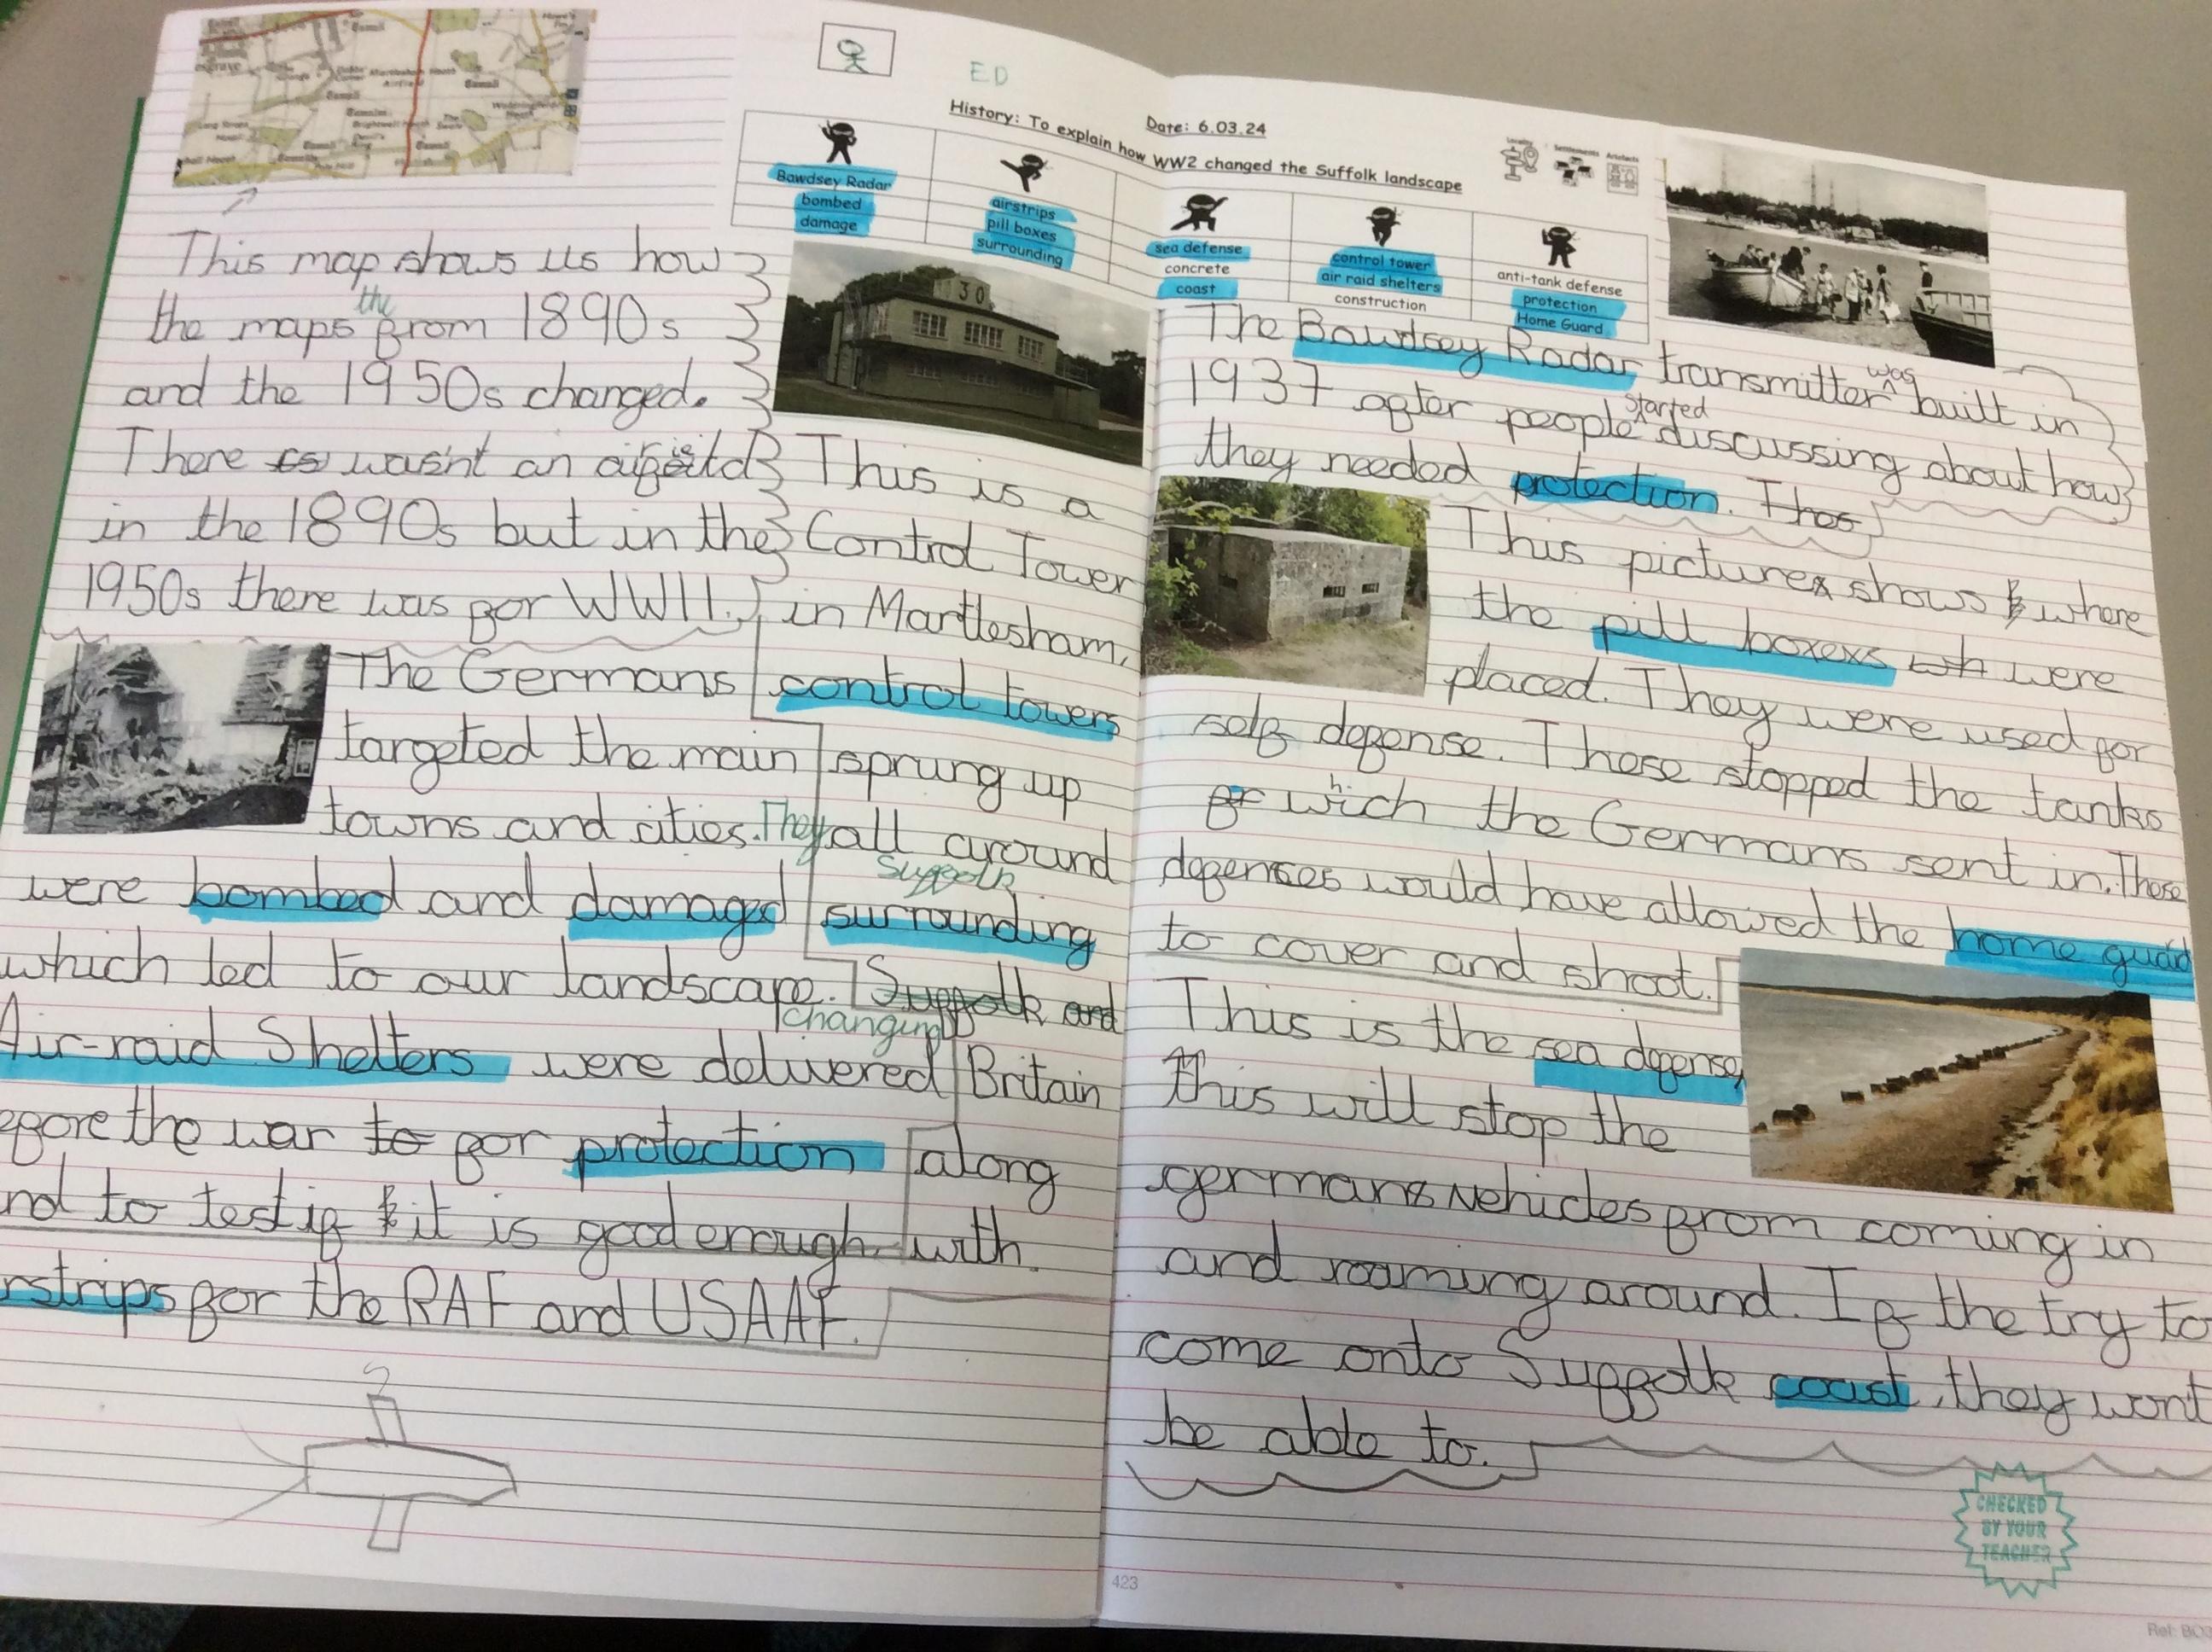 ED
Date: 6.03.24
History: To explain how WW2 changed the Suffolk landscape
Locality
Settlements
Artefacts
Bawdsey Radar
bombed
damage
airstrips
pill boxes
surrounding
sea defense
concrete
coast
control tower
air raid shelters
construction
anti-tank defense
protection
Home Guard
This map shows us how
the maps the from 1890s
and the 1950s changed.
There is wasn't an airfeild
in the 1890s but in the
1950s there was for WWII.
The Germans
targeted the main
towns and cities. They
were bombed and damaged
which led to our landscape.
changing
Air-raid Shelters were delivered
efore the war to for protection
nd to test if it is good enough.
rstrips for the RAF and USAAF.
30
This is a
Control Tower
in Martlesham,
control towers
sprung up
all around
Suffolk
surrounding
Suffolk and
Britain
along
with
The Bawdsey Radar transmitter was built in
1937 after people started discussing about how
they needed protection. Thes
This picture shows where
the pill boxes wh were
placed. They were used for
self defense. These stopped the tanks
of which the Germans sent in. These
defenses would have allowed the home guard
to cover and shoot.
This is the sea defense,
this will stop the
germans vehicles from coming in
and roaming around. If the try to
come onto Suffolk coast, they wont
be able to.
CHECKED
BY YOUR
TEACHER
423